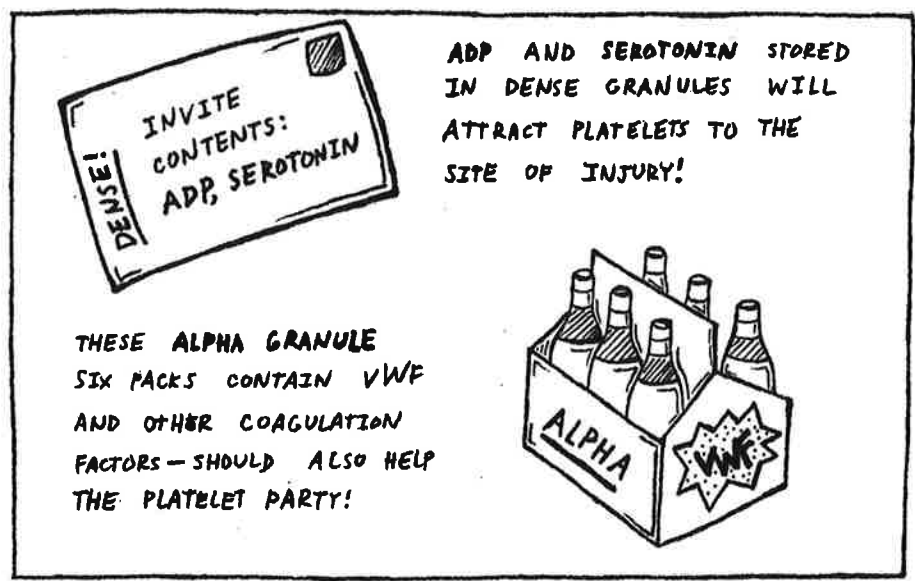 DENSE!
INVITE
CONTENTS:
ADP, SEROTONIN
ADP AND SEROTONIN STORED
IN DENSE GRANULES WILL
ATTRACT PLATELETS TO THE
SITE OF INJURY!
THESE ALPHA GRANULE
SIX PACKS CONTAIN VWF
AND OTHER COAGULATION
FACTORS — SHOULD ALSO HELP
THE PLATELET PARTY!
ALPHA
VWF